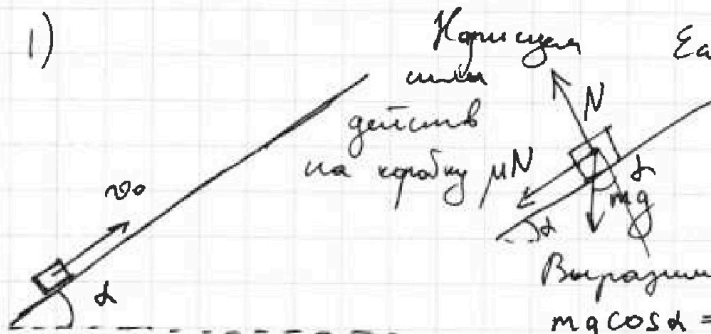 1)
Нарисуем
силы
действ
на коробку
Ea
N
μN
mg
α
α
v₀
α
Выразим
mg cosα =